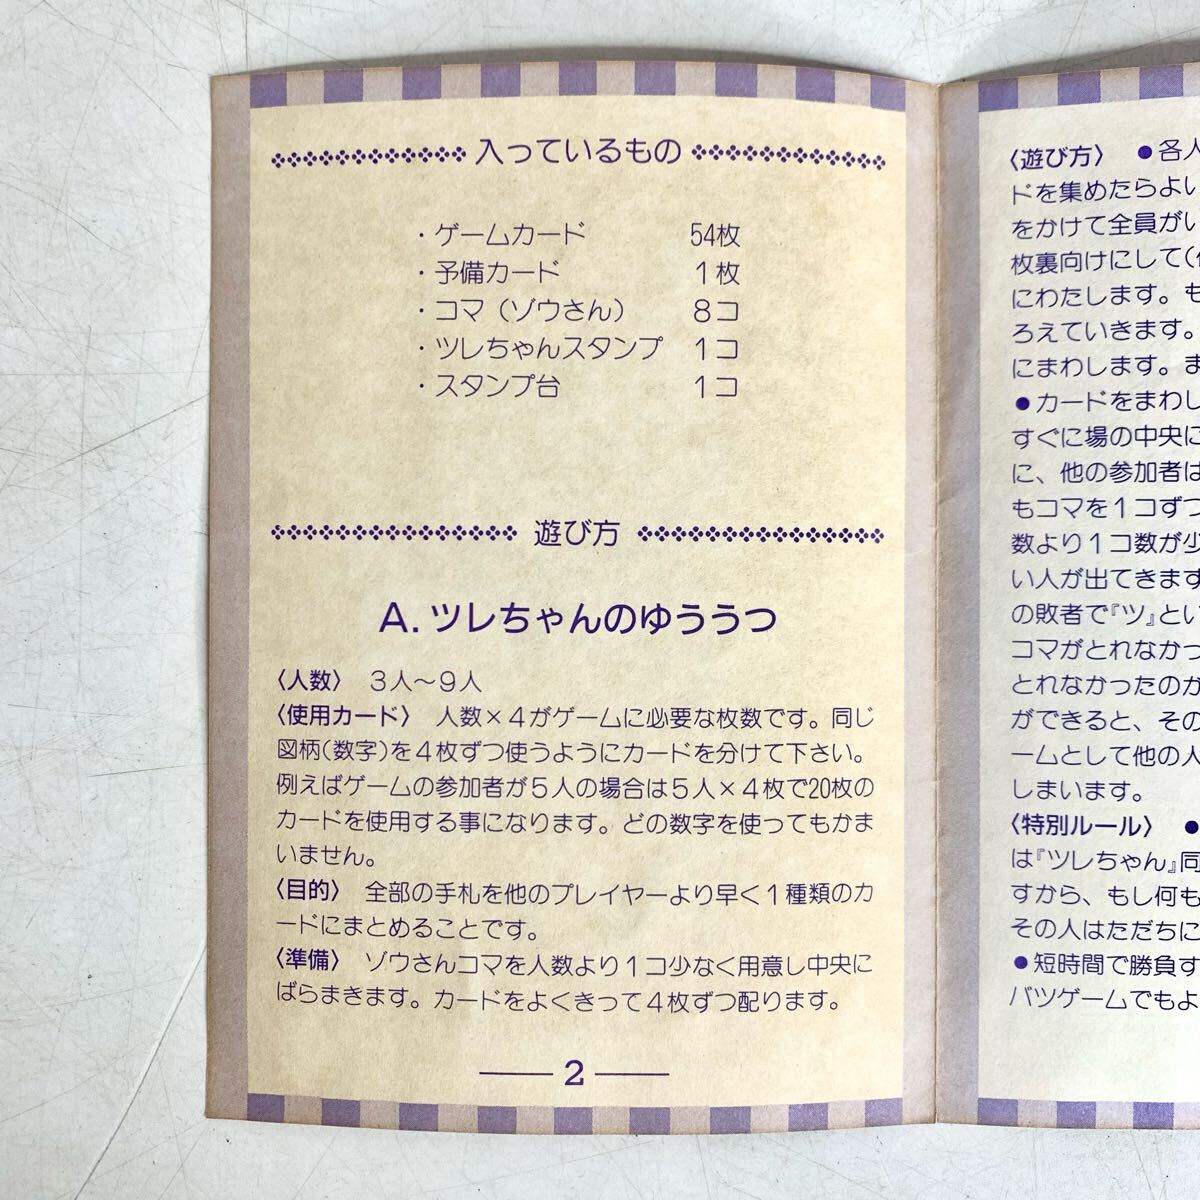 入っているもの
・ゲームカード 54枚
・予備カード 1枚
・コマ（ゾウさん） 8コ
・ツレちゃんスタンプ 1コ
・スタンプ台 1コ
遊び方
A. ツレちゃんのゆううつ
〈人数〉 3人〜9人
〈使用カード〉 人数×4がゲームに必要な枚数です。同じ
図柄(数字)を4枚ずつ使うようにカードを分けて下さい。
例えばゲームの参加者が5人の場合は5人×4枚で20枚の
カードを使用する事になります。どの数字を使ってもかま
いません。
〈目的〉 全部の手札を他のプレイヤーより早く1種類のカ
ードにまとめることです。
〈準備〉 ゾウさんコマを人数より1コ少なく用意し中央に
ばらまきます。カードをよくきって4枚ずつ配ります。
2
〈遊び方〉 ●各人
ドを集めたらよい
をかけて全員がい
枚裏向けにして(
にわたします。も
ろえていきます。
にまわします。ま
●カードをまわし
すぐに場の中央に
に、他の参加者は
もコマを1コずつ
数より1コ数が少
い人が出てきます
の敗者で『ツ』とい
コマがとれなかっ
とれなかったのが
ができると、その
ームとして他の人
しまいます。
〈特別ルール〉 ●
は『ツレちゃん』同
すから、もし何も
その人はただちに
●短時間で勝負す
バツゲームでもよ